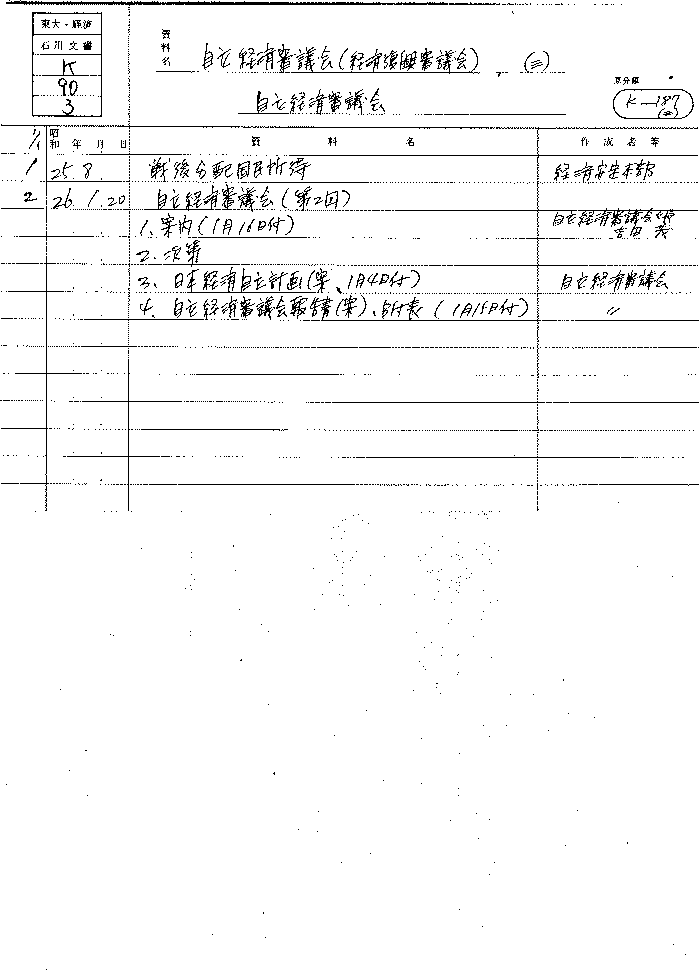 東大・経済
石川文書
K
90
3
資料名
自立経済審議会(経済復興審議会)、(三)
自立経済審議会
原分類
K-187
(3)
1/1 昭和 年 月 日 資 料 名 作成者等
1 25. 8. 戦後分配国民所得 経済安定本部
2 26. 1. 20 自立経済審議会(第2回)
1. 案内(1月16日付) 自立経済審議会々長 吉田 茂
2. 次第
3. 日本経済自立計画(案、1月4日付) 自立経済審議会
4. 自立経済審議会報告書(案)、附付表(1月15日付) 〃